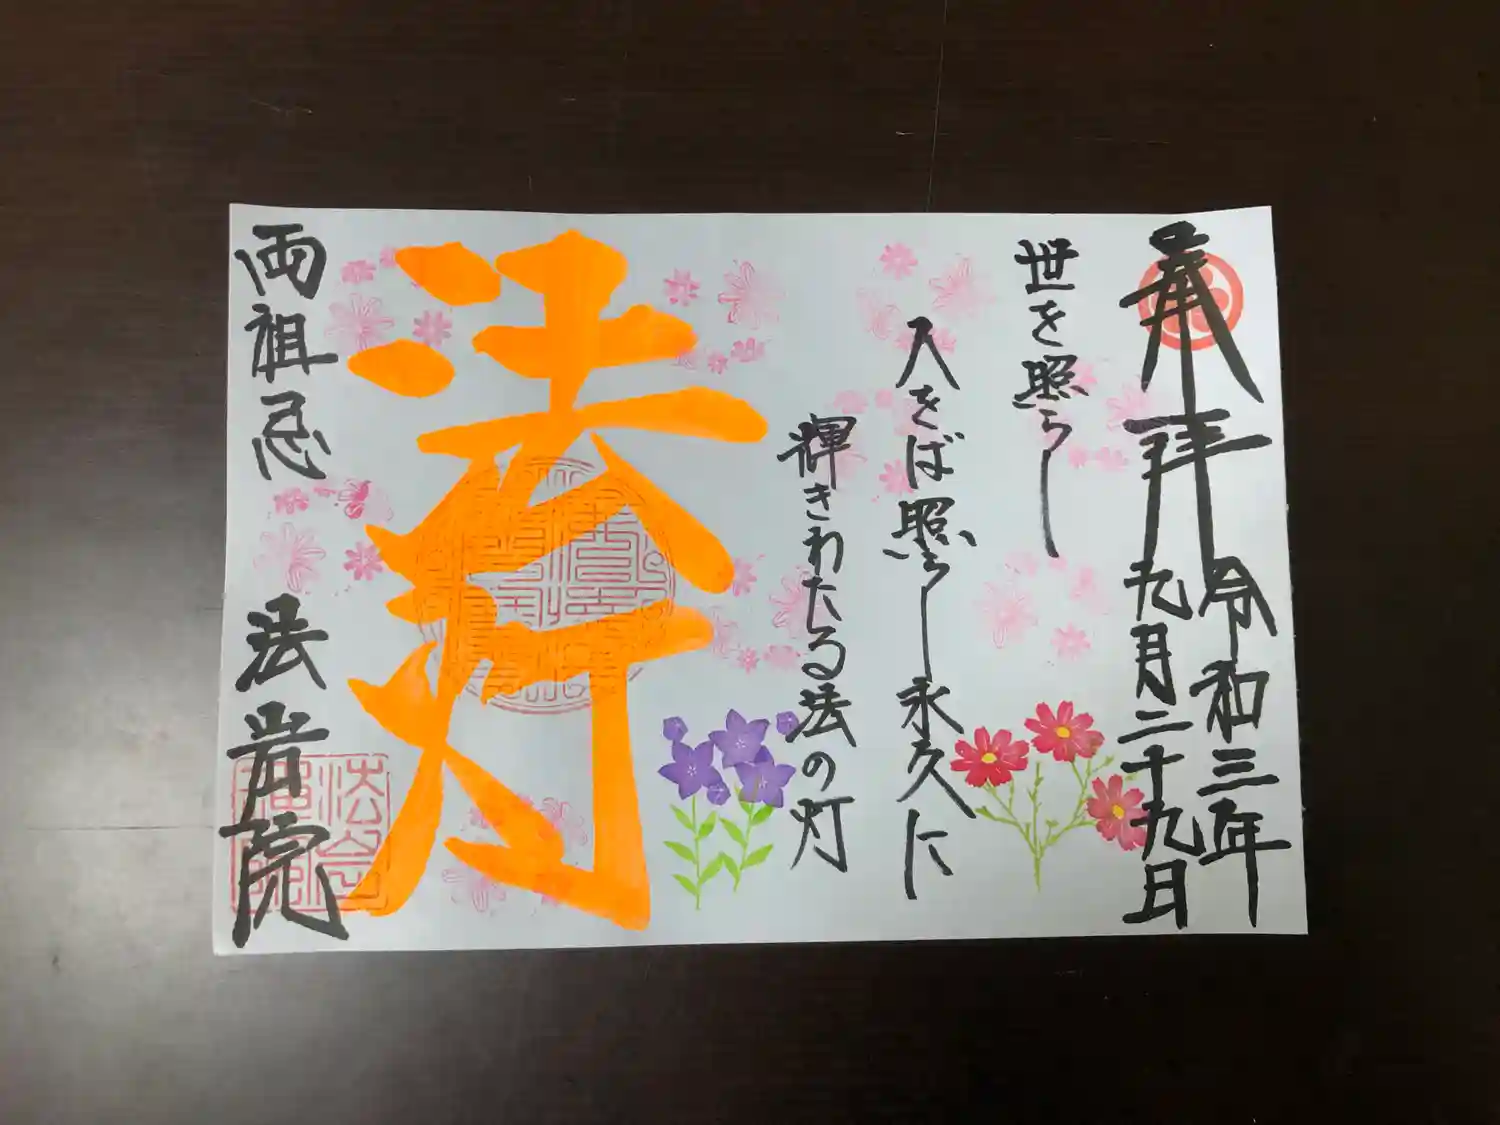 奉拝
令和三年
九月二十九日
世を照らし
人をば照らし永久に
輝きわたる法の灯
法灯
両祖忌
法岩院